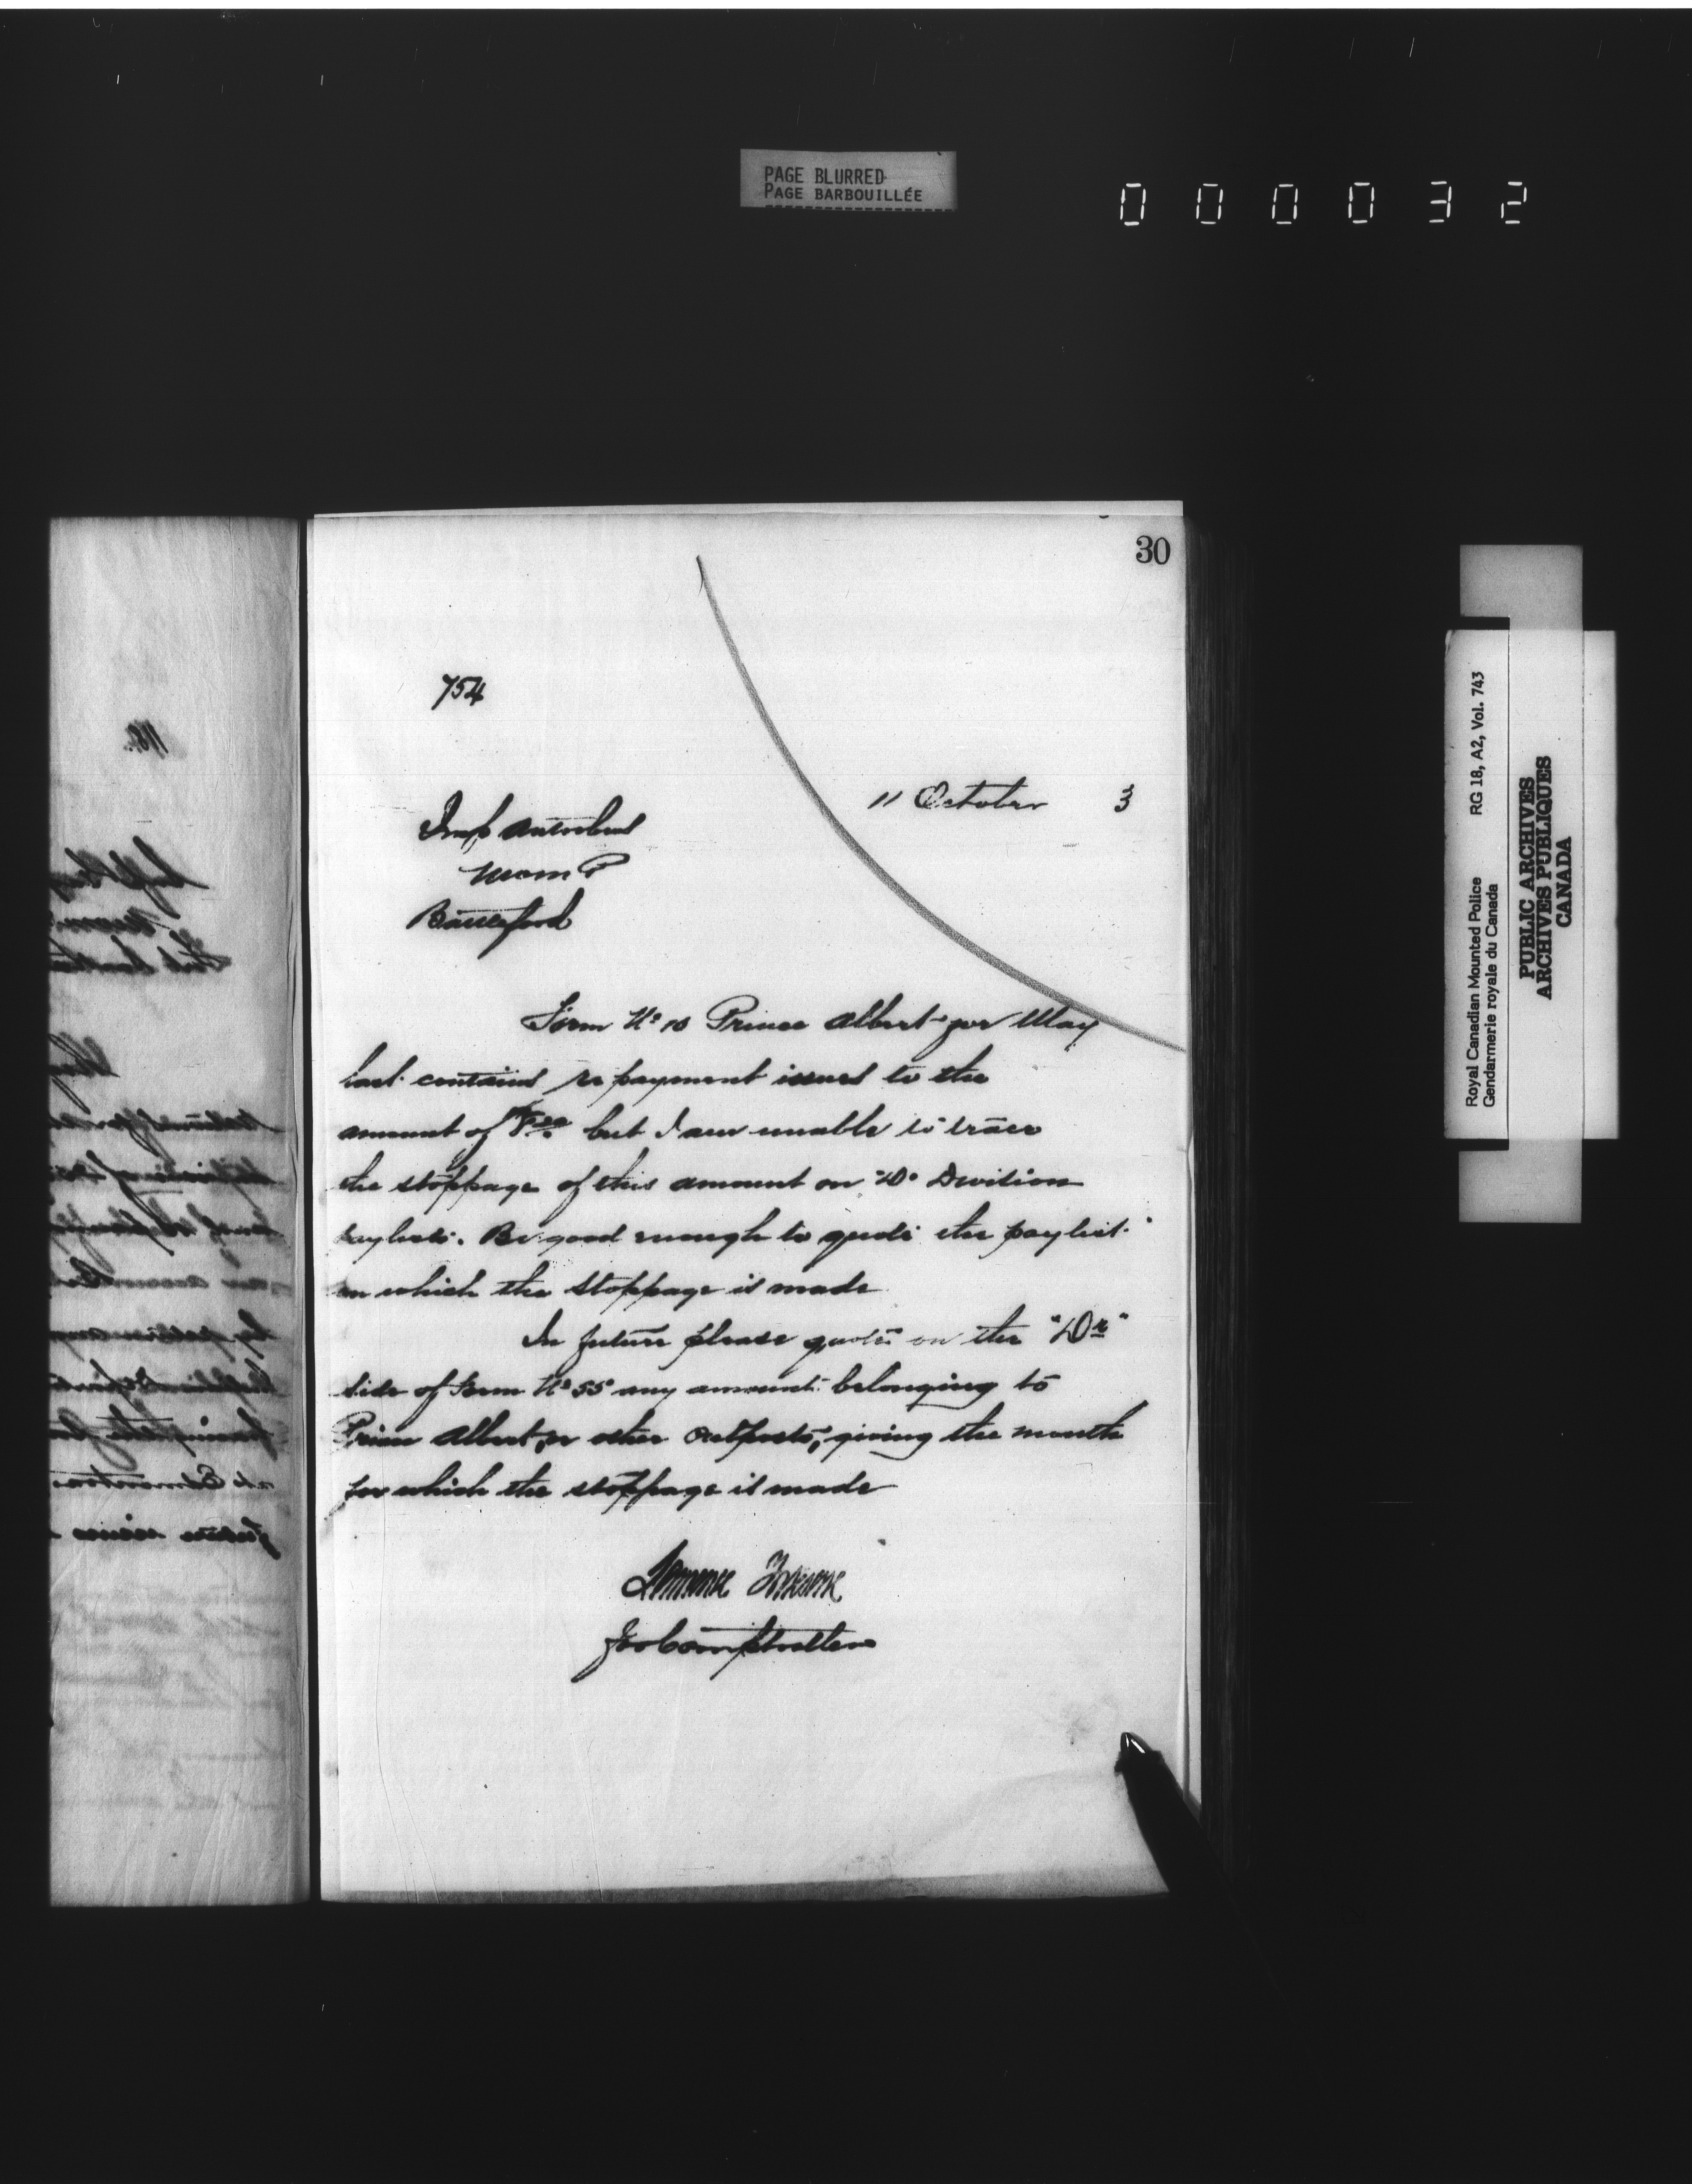 PAGE BLURRED
PAGE BARBOUILLÉE
000032
30
754
11 October 3
Insp Antrobus
NWMP
Battleford
Form No 10 Prince Albert for May
last contains repayment issues to the
amount of but I am unable to trace
the stoppage of this amount on "D" Division
paylists. Be good enough to quote the paylist
on which the stoppage is made
In future please quote on the "Dr"
side of Form No 55 any amount belonging to
Prince Albert, or other Outposts, giving the month
for which the stoppage is made
for Comptroller
Royal Canadian Mounted Police RG 18, A2, Vol. 743
Gendarmerie royale du Canada
PUBLIC ARCHIVES
ARCHIVES PUBLIQUES
CANADA